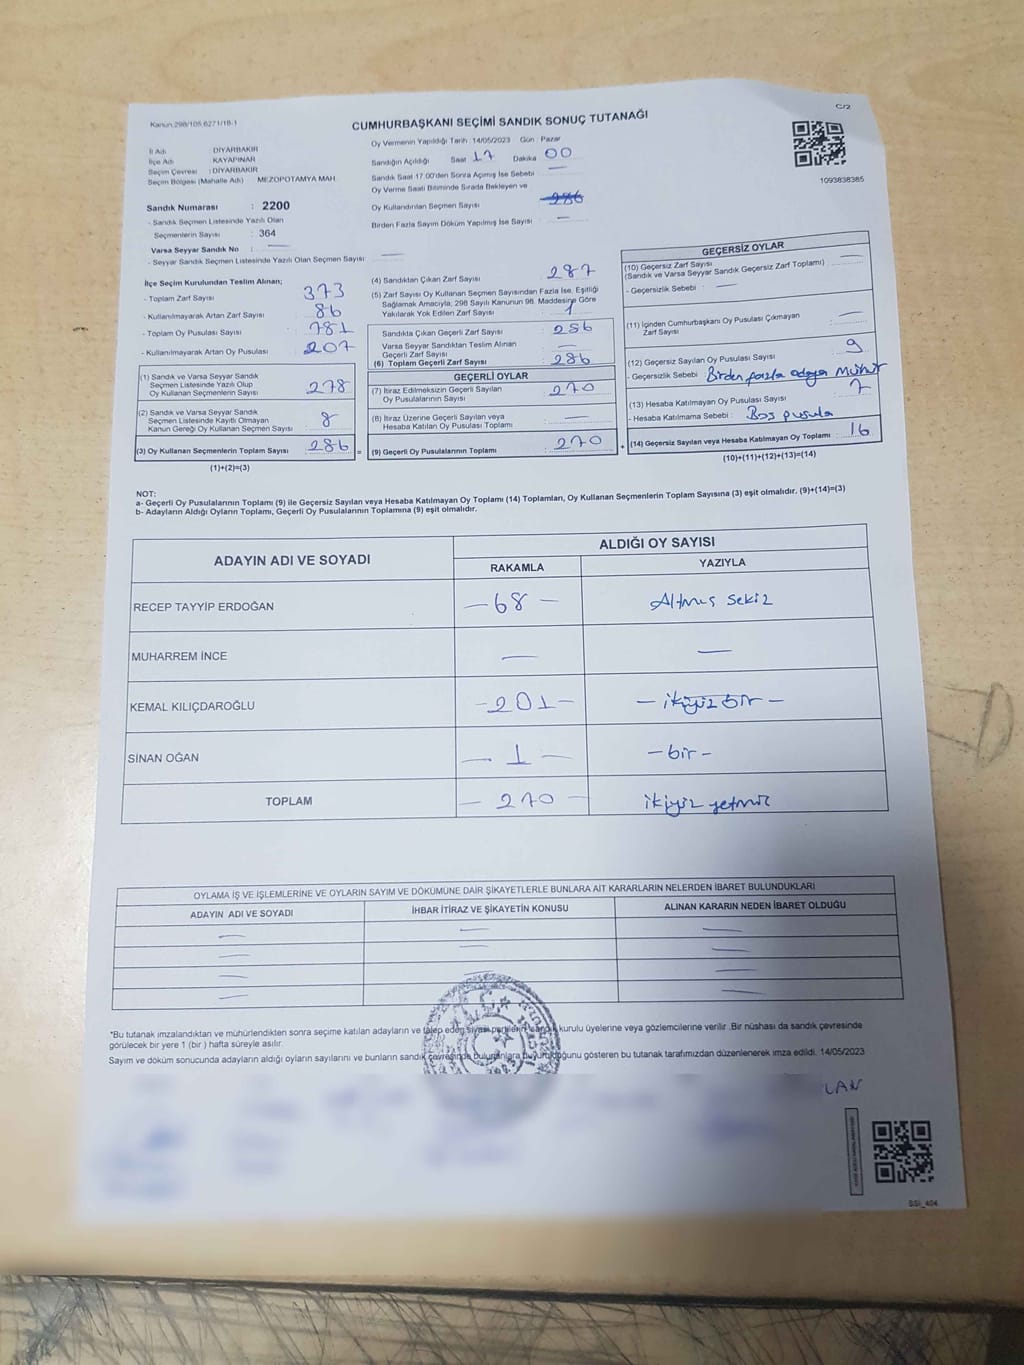 C/2
Kanun:298/105 6271/18-1
CUMHURBAŞKANI SEÇİMİ SANDIK SONUÇ TUTANAĞI
1093838385
İl Adı : DİYARBAKIR
İlçe Adı : KAYAPINAR
Seçim Çevresi : DİYARBAKIR
Seçim Bölgesi (Mahalle Adı) : MEZOPOTAMYA MAH.
Sandık Numarası : 2200
- Sandık Seçmen Listesinde Yazılı Olan
Seçmenlerin Sayısı : 364
Varsa Seyyar Sandık No : —
- Seyyar Sandık Listesinde Yazılı Olan Seçmen Sayısı : —
Oy Vermenin Yapıldığı Tarih 14/05/2023 Gün Pazar
Sandığın Açıldığı Saat 17 Dakika 00
Sandık Saat 17:00'den Sonra Açımış İse Sebebi —
Oy Verme Saati Bitiminde Sırada Bekleyen ve
Oy Kullandırılan Seçmen Sayısı 286
Birden Fazla Sayım Döküm Yapılmış İse Sayısı —
İlçe Seçim Kurulundan Teslim Alınan;
- Toplam Zarf Sayısı : 373
- Kullanılmayarak Artan Zarf Sayısı : 86
- Toplam Oy Pusulası Sayısı : 781
- Kullanılmayarak Artan Oy Pusulası : 207
(1) Sandık ve Varsa Seyyar Sandık
Seçmen Listesinde Yazılı Olup
Oy Kullanan Seçmenlerin Sayısı : 278
(2) Sandık ve Varsa Seyyar Sandık
Seçmen Listesinde Kayıtlı Olmayan
Kanun Gereği Oy Kullanan Seçmen Sayısı : 8
(3) Oy Kullanan Seçmenlerin Toplam Sayısı : 286 =
(1)+(2)=(3)
(4) Sandıktan Çıkan Zarf Sayısı : 287
(5) Zarf Sayısı Oy Kullanan Seçmen Sayısından Fazla İse, Eşitliği
Sağlamak Amacıyla; 298 Sayılı Kanunun 98. Maddesine Göre
Yakılarak Yok Edilen Zarf Sayısı : 1
Sandıkta Çıkan Geçerli Zarf Sayısı : 286
Varsa Seyyar Sandıktan Teslim Alınan
Geçerli Zarf Sayısı : —
(6) Toplam Geçerli Zarf Sayısı : 286
GEÇERLİ OYLAR
(7) İtiraz Edilmeksizin Geçerli Sayılan
Oy Pusulalarının Sayısı : 270
(8) İtiraz Üzerine Geçerli Sayılan veya
Hesaba Katılan Oy Pusulası Toplamı : —
(9) Geçerli Oy Pusulalarının Toplamı : 270 +
GEÇERSİZ OYLAR
(10) Geçersiz Zarf Sayısı
(Sandık ve Varsa Seyyar Sandık Geçersiz Zarf Toplamı) : —
- Geçersizlik Sebebi : —
(11) İçinden Cumhurbaşkanı Oy Pusulası Çıkmayan
Zarf Sayısı : —
(12) Geçersiz Sayılan Oy Pusulası Sayısı : 9
- Geçersizlik Sebebi : Birden fazla adaya Mühür
(13) Hesaba Katılmayan Oy Pusulası Sayısı : 7
- Hesaba Katılmama Sebebi : Boş pusula
(14) Geçersiz Sayılan veya Hesaba Katılmayan Oy Toplamı : 16
(10)+(11)+(12)+(13)=(14)
NOT:
a- Geçerli Oy Pusulalarının Toplamı (9) ile Geçersiz Sayılan veya Hesaba Katılmayan Oy Toplamı (14) Toplamları, Oy Kullanan Seçmenlerin Toplam Sayısına (3) eşit olmalıdır. (9)+(14)=(3)
b- Adayların Aldığı Oyların Toplamı, Geçerli Oy Pusulalarının Toplamına (9) eşit olmalıdır.
ADAYIN ADI VE SOYADI
ALDIĞI OY SAYISI
RAKAMLA YAZIYLA
RECEP TAYYİP ERDOĞAN — 68 — Altmış sekiz
MUHARREM İNCE — —
KEMAL KILIÇDAROĞLU — 201 — — ikiyüz bir —
SİNAN OĞAN — 1 — — bir —
TOPLAM — 270 — ikiyüz yetmiş
OYLAMA İŞ VE İŞLEMLERİNE VE OYLARIN SAYIM VE DÖKÜMÜNE DAİR ŞİKAYETLERLE BUNLARA AİT KARARLARIN NELERDEN İBARET BULUNDUKLARI
ADAYIN ADI VE SOYADI İHBAR İTİRAZ VE ŞİKAYETİN KONUSU ALINAN KARARIN NEDEN İBARET OLDUĞU
— — —
— — —
— —
— —
*Bu tutanak imzalandıktan ve mühürlendikten sonra seçime katılan adayların ve talep eden siyasi partilerin sandık kurulu üyelerine veya gözlemcilerine verilir .Bir nüshası da sandık çevresinde
görülecek bir yere 1 (bir ) hafta süreyle asılır.
Sayım ve döküm sonucunda adayların aldığı oyların sayılarını ve bunların sandık çevresinde bulunanlara duyurulduğunu gösteren bu tutanak tarafımızdan düzenlenerek imza edildi. 14/05/2023
LAN
SSİ_404